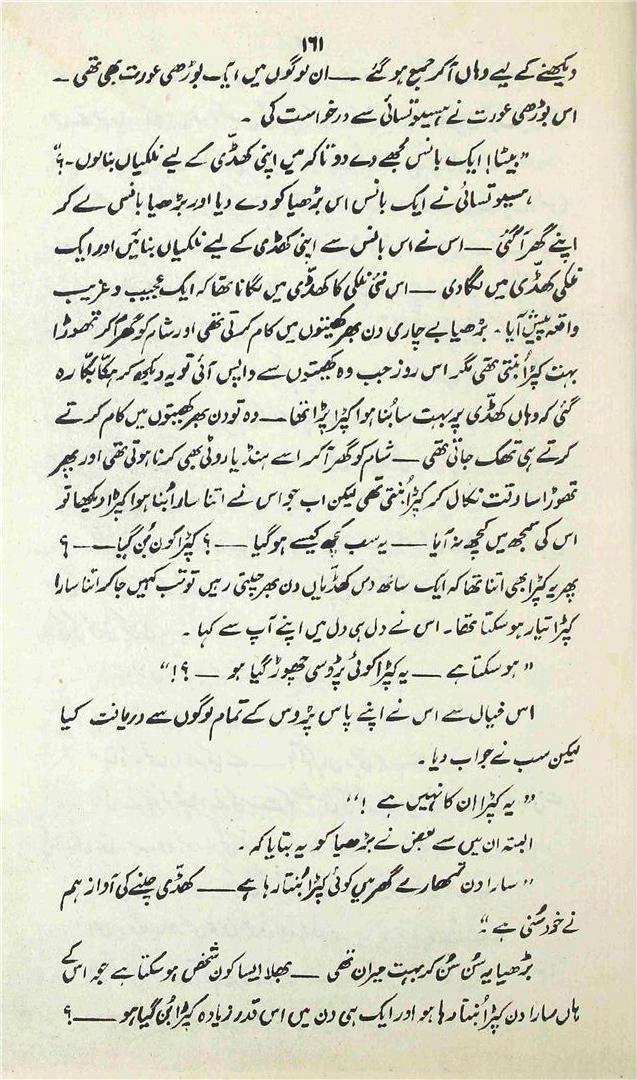 ۱۶۱
دیکھنے کے لیے وہاں آکر جمع ہو گئے — ان لوگوں میں ایک بوڑھی عورت بھی تھی ۔
اس بوڑھی عورت نے ہسیوتسائی سے درخواست کی ۔
”بیٹا! ایک بانس مجھے دے دو تاکہ میں اپنی کھڈّی کے لیے نلکیاں بنالوں ۔؟“
ہسیوتسائی نے ایک بانس اس بڑھیا کو دے دیا اور بڑھیا بانس لے کر
اپنے گھر آگئی — اس نے اس بانس سے اپنی کھڈی کے لیے نلکیاں بنائیں اور ایک
نلکی کھڈّی میں لگا دی — اس نئی نلکی کا کھڈّی میں لگانا تھا کہ ایک عجیب و غریب
واقعہ پیش آیا ۔ بڑھیا بے چاری دن بھر کھیتوں میں کام کرتی تھی اور شام کو گھر آکر تھوڑا
بہت کپڑا بُنتی تھی مگر اس روز جب وہ کھیتوں سے واپس آئی تو یہ دیکھ کر ہکّا بکّا رہ
گئی کہ وہاں کھڈّی پر بہت سا بُنا ہوا کپڑا پڑا تھا — وہ تو دن بھر کھیتوں میں کام کرتے
کرتے ہی تھک جاتی تھی — شام کو گھر آکر اسے ہنڈیا روٹی بھی کرنا ہوتی تھی اور پھر
تھوڑا سا وقت نکال کر کپڑا بُنتی تھی لیکن اب جو اس نے اتنا سارا بُنا ہوا کپڑا دیکھا تو
اس کی سمجھ میں کچھ نہ آیا — یہ سب کچھ کیسے ہو گیا — ؟ کپڑا کون بُن گیا — ؟
پھر یہ کپڑا بھی اتنا تھا کہ ایک ساتھ دس کھڈّیاں دن بھر چلتی رہیں تو تب کہیں جاکر اتنا سارا
کپڑا تیار ہو سکتا تھا ۔ اس نے دل ہی دل میں اپنے آپ سے کہا ۔
”ہو سکتا ہے — یہ کپڑا کوئی پڑوسی چھوڑ گیا ہو — ؟!“
اس خیال سے اس نے اپنے پاس پڑوس کے تمام لوگوں سے دریافت کیا
لیکن سب نے جواب دیا ۔
”یہ کپڑا ان کا نہیں ہے !“
البتہ ان میں سے بعض نے بڑھیا کو یہ بتایا کہ ۔
”سارا دن تمھارے گھر میں کوئی کپڑا بُنتا رہا ہے — کھڈّی چلنے کی آواز ہم
نے خود سُنی ہے ۔“
بڑھیا یہ سُن سُن کر بہت حیران تھی — بھلا ایسا کون شخص ہو سکتا ہے جو اس کے
ہاں سارا دن کپڑا بُنتا رہا ہو اور ایک ہی دن میں اس قدر زیادہ کپڑا بُن گیا ہو — ؟